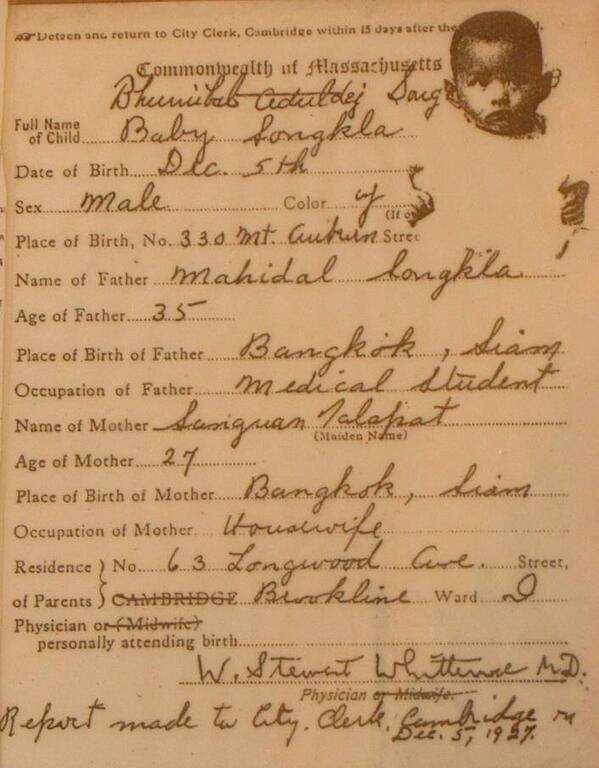 Detach and return to City Clerk, Cambridge within 15 days after the
Commonwealth of Massachusetts
Bhumibol Aduldej Song
Full Name of Child Baby Songkla
Date of Birth Dec. 5th
Sex Male Color y (If o
Place of Birth, No. 330 Mt. Auburn Stree
Name of Father Mahidal Songkla
Age of Father 35
Place of Birth of Father Bangkok, Siam
Occupation of Father Medical Student
Name of Mother Sanguan Talapat
(Maiden Name)
Age of Mother 27
Place of Birth of Mother Bangkok, Siam
Occupation of Mother Housewife
Residence No. 63 Longwood Ave. Street,
of Parents CAMBRIDGE Brookline Ward
Physician or (Midwife)
personally attending birth
W. Stewart Whittemore M.D.
Physician or Midwife.
Report made to City Clerk, Cambridge on
Dec. 5, 1927.